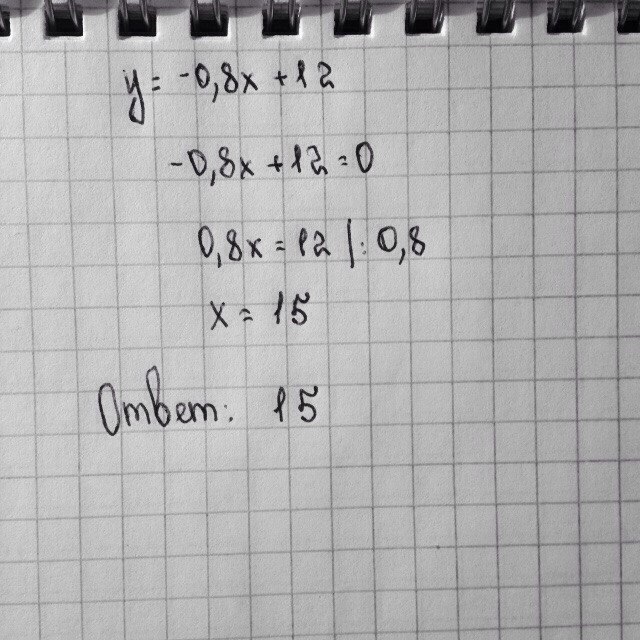 y = -0,8x + 12
-0,8x + 12 = 0
0,8x = 12 |: 0,8
x = 15
Ответ: 15